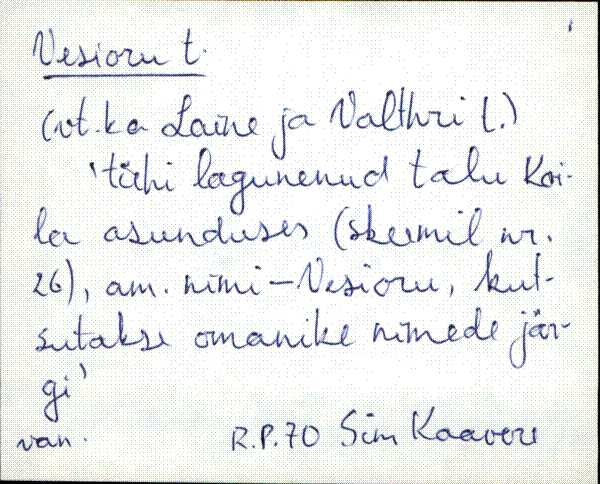 Vesioru t.
(vt. ka Laine ja Valthri t.)
'tühi lagunenud talu Koi-
la asunduses (skeemil nr.
26), am. nimi - Vesioru, kut-
sutakse omanike nimede jär-
gi'
van. R.P.70 Sim Kaavere